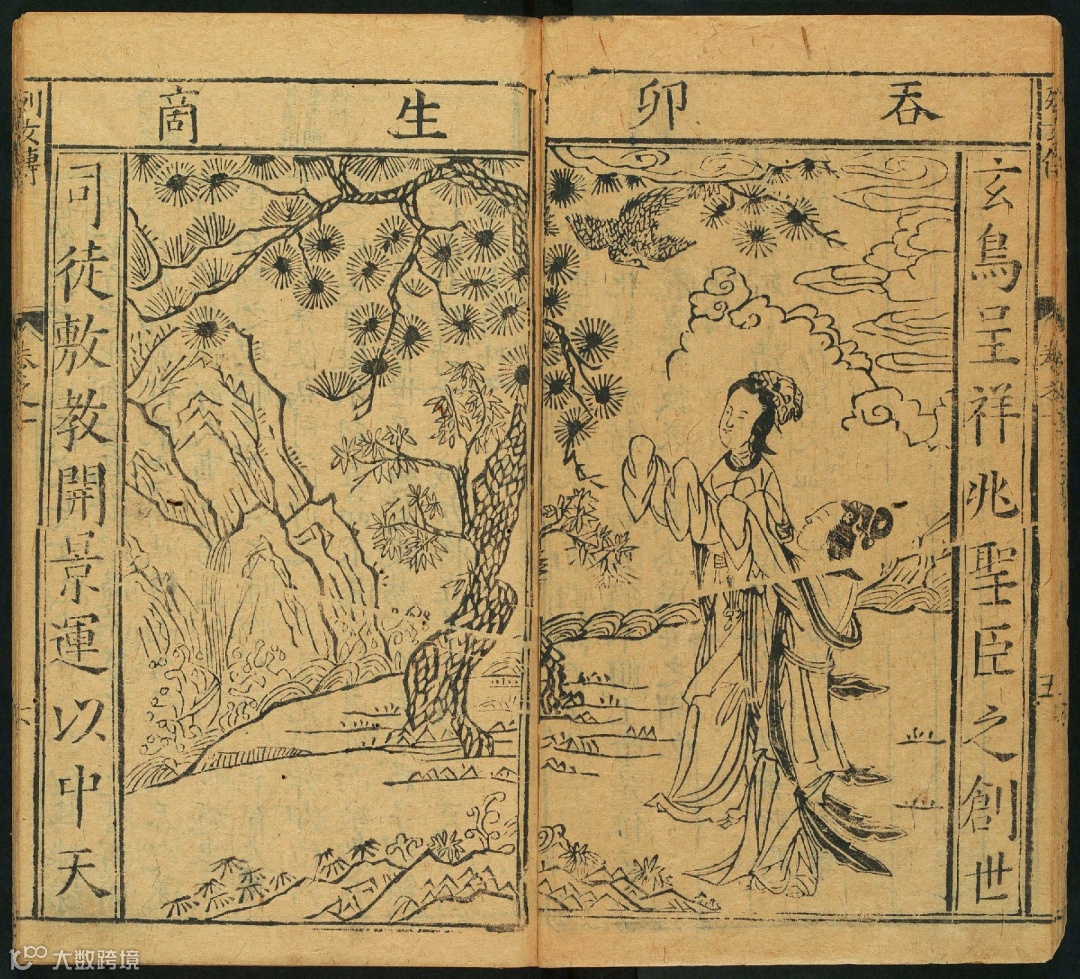 吞卵生商
玄鳥呈祥兆聖臣之創世
司徒敷教開景運以中天
列女傳
卷之一
五
大数跨境